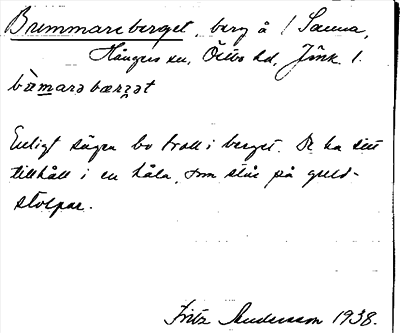 Brummareberget, berg å / Sanna,
Hångers sn, Östbo hd, Jönk. l.
bròmara bærjat
Enligt sägen bo troll i berget. De ha sitt
tillhåll i en håla, som står på guld-
stolpar.
Fritz Andersson 1938.